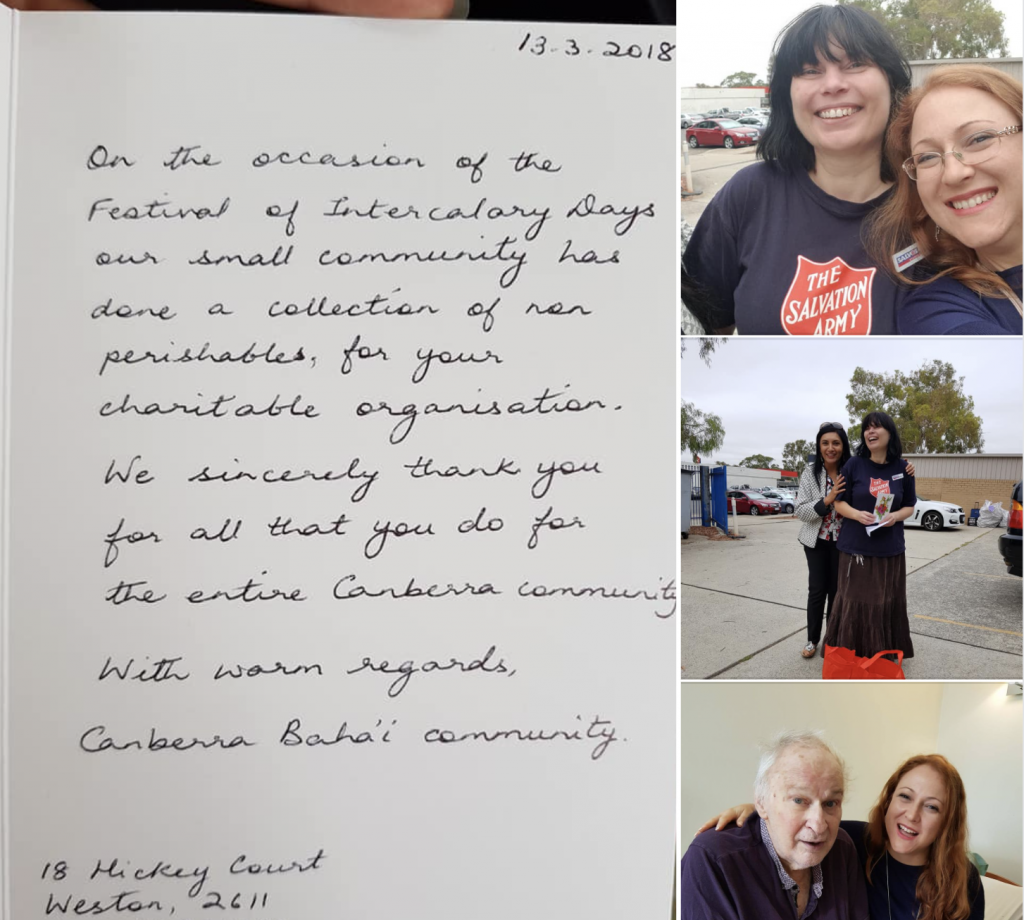 13-3-2018
On the occasion of the
Festival of Intercalary Days
our small community has
done a collection of non
perishables, for your
charitable organisation.
We sincerely thank you
for all that you do for
the entire Canberra community
With warm regards,
Canberra Bahá'í community.
18 Hickey Court
Weston, 2611
THE
SALVATION
ARMY
THE
SALVATION